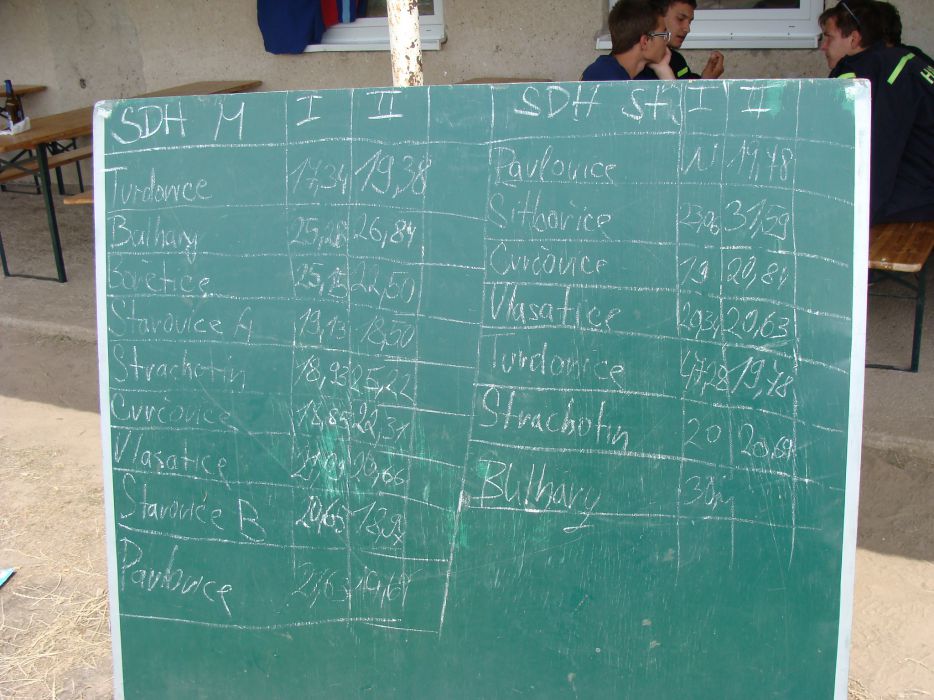 SDH M I II
Tvrdonice 17,34 19,38
Bulhary 25,28 26,84
Bořetice 25,15 22,50
Starovice A 19,13 18,50
Strachotín 18,93 25,22
Cvrčovice 18,85 22,31
Vlasatice 20,66
Starovice B 20,65
Pavlovice 19,61
SDH St I II
Pavlovice N 19,78
Sitbořice 23,96 31,59
Cvrčovice 19 20,81
Vlasatice 20,31 20,63
Tvrdonice 47,28 19,78
Strachotín 20 20,69
Bulhary